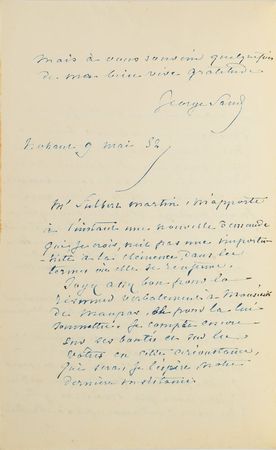 mais à vous souvenir quelquefois
de ma bien vive gratitude
George Sand
Nohant 9 mai 52
Mr Fulbert Martin m'apporte
à l'instant une nouvelle demande
qui, je crois, n'est pas une importu-
nité à la clémence, dans les
termes où elle se renferme.
Soyez assez bon pour la
résumer verbalement à Monsieur
de Maupas, et pour la lui
. Je compte encore
sur ses bontés et sur les
vôtres en cette circonstance,
qui sera, je l'espère, notre
dernière